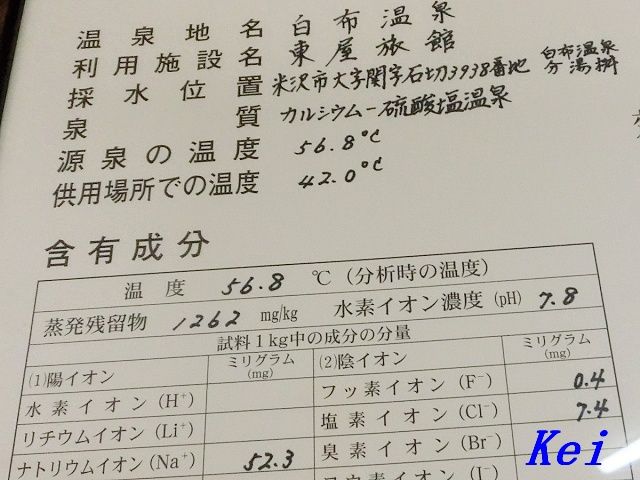 温泉地名 白布温泉
利用施設名 東屋旅館
採水位置 米沢市大字関字石切3938番地 白布温泉分湯桝
泉質 カルシウムー硫酸塩温泉
源泉の温度 56.8℃
供用場所での温度 42.0℃
含有成分
温度 56.8 ℃ (分析時の温度)
蒸発残留物 1262 mg/kg 水素イオン濃度 (pH) 7.8
試料1kg中の成分の分量
(1)陽イオン ミリグラム(mg) (2)陰イオン ミリグラム(mg)
水素イオン(H⁺) フッ素イオン(F⁻) 0.4
リチウムイオン(Li⁺) 塩素イオン(Cl⁻) 7.4
ナトリウムイオン(Na⁺) 52.3 臭素イオン(Br⁻)
Kei